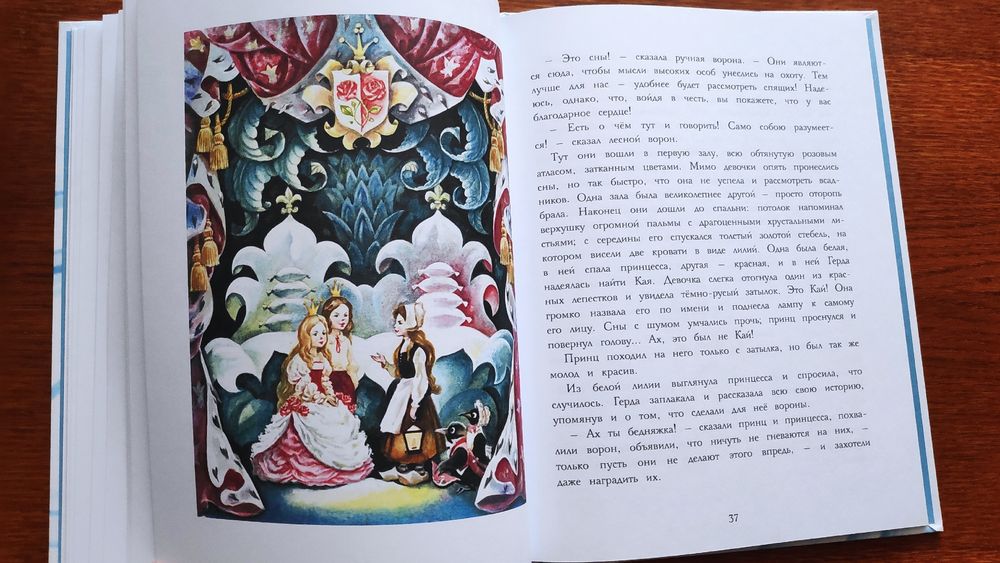 — Это сны! — сказала ручная ворона. — Они являют-
ся сюда, чтобы мысли высоких особ унеслись на охоту. Тем
лучше для нас — удобнее будет рассмотреть спящих! Наде-
юсь, однако, что, войдя в честь, вы покажете, что у вас
благодарное сердце!
— Есть о чём тут и говорить! Само собою разумеет-
ся! — сказал лесной ворон.
Тут они вошли в первую залу, всю обтянутую розовым
атласом, затканным цветами. Мимо девочки опять пронеслись
сны, но так быстро, что она не успела и рассмотреть всад-
ников. Одна зала была великолепнее другой — просто оторопь
брала. Наконец они дошли до спальни: потолок напоминал
верхушку огромной пальмы с драгоценными хрустальными ли-
стьями; с середины его спускался толстый золотой стебель, на
котором висели две кровати в виде лилий. Одна была белая,
в ней спала принцесса, другая — красная, и в ней Герда
надеялась найти Кая. Девочка слегка отогнула один из крас-
ных лепестков и увидела тёмно-русый затылок. Это Кай! Она
громко назвала его по имени и поднесла лампу к самому
его лицу. Сны с шумом умчались прочь; принц проснулся и
повернул голову... Ах, это был не Кай!
Принц походил на него только с затылка, но был так же
молод и красив.
Из белой лилии выглянула принцесса и спросила, что
случилось. Герда заплакала и рассказала всю свою историю,
упомянув и о том, что сделали для неё вороны.
— Ах ты бедняжка! — сказали принц и принцесса, похва-
лили ворон, объявили, что ничуть не гневаются на них, —
только пусть они не делают этого впредь, — и захотели
даже наградить их.
37